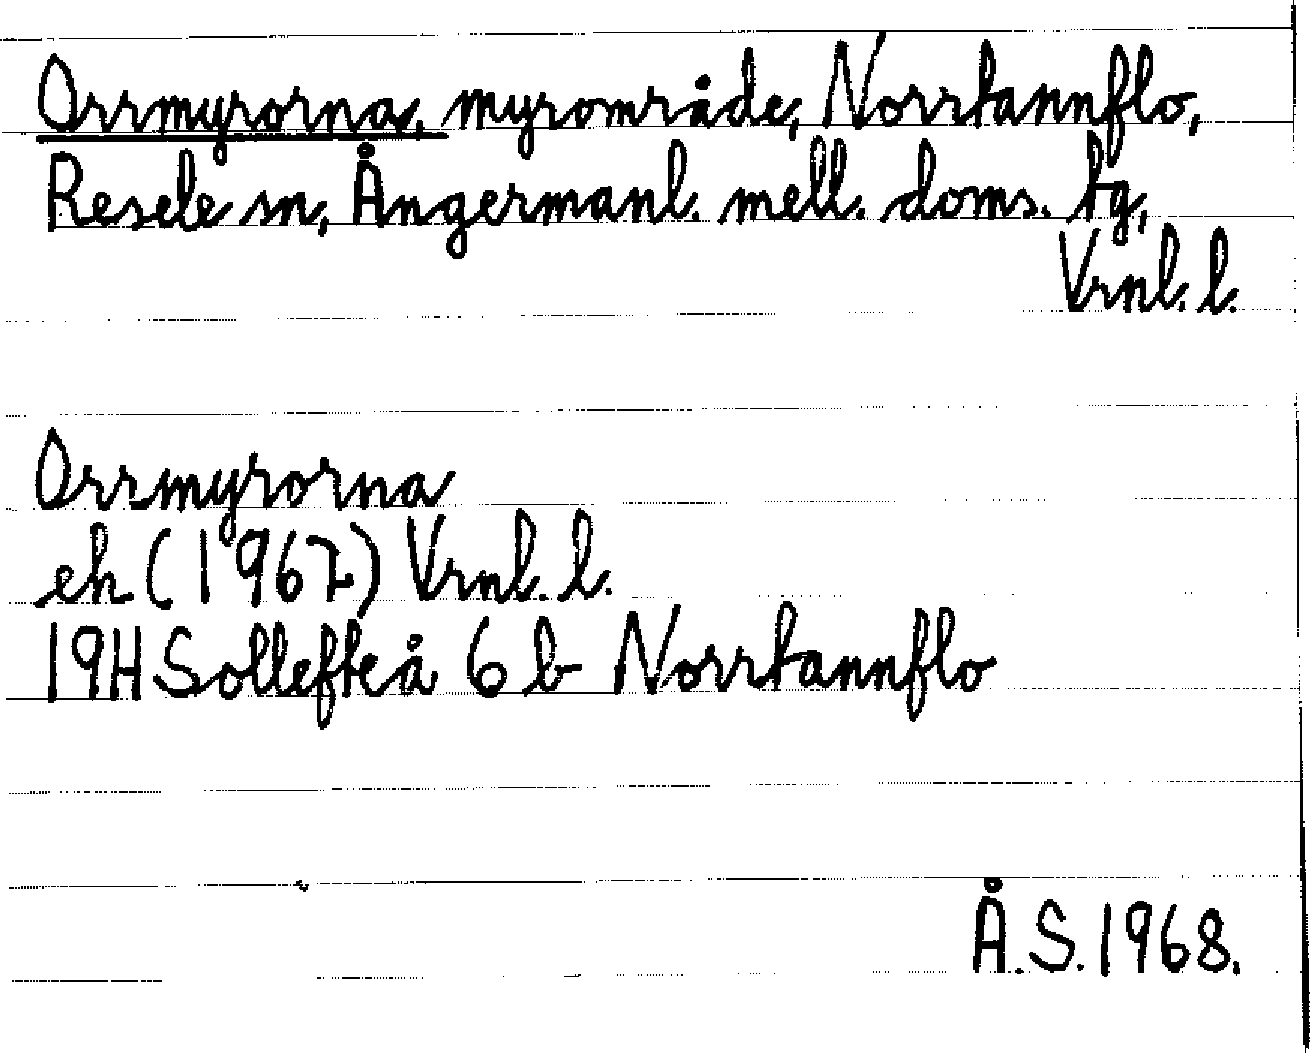 Orrmyrorna, myrområde, Norrtannflo,
Resele sn, Ångermanl. mell. doms. tg,
Vrnl. l.
Orrmyrorna
ek (1967) Vrnl. l.
19H Sollefteå 6 b Norrtannflo
Å.S. 1968.